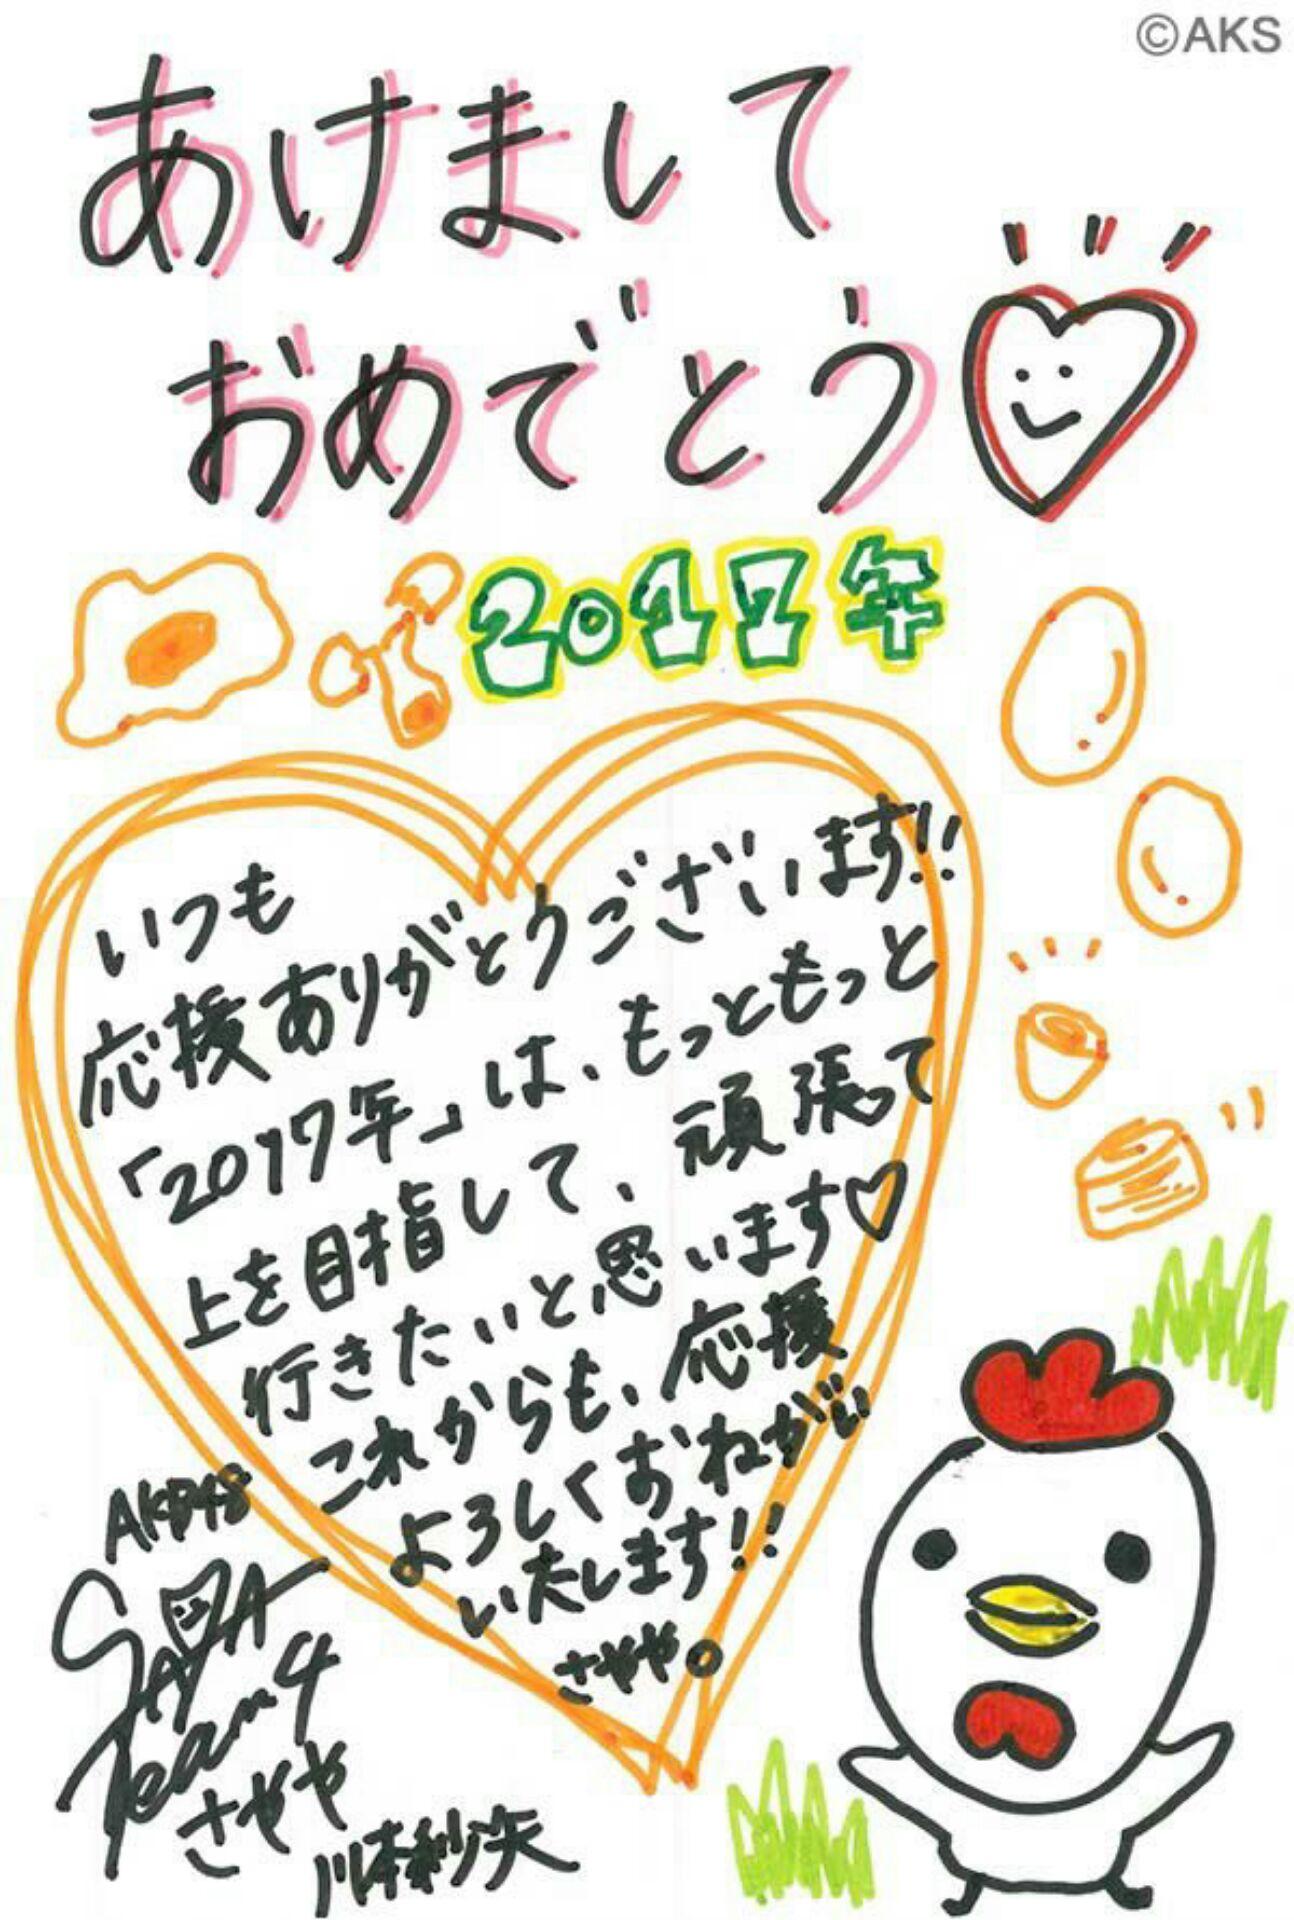 ©AKS
あけまして
おめでとう
2017年
いつも
応援ありがとうございます!!
「2017年」は、もっともっと
上を目指して、頑張って
行きたいと思います♡
これからも、応援
よろしくおねがい
いたします!!
さやや。
AKB48
SAYA
Team4
さやや
川本紗矢